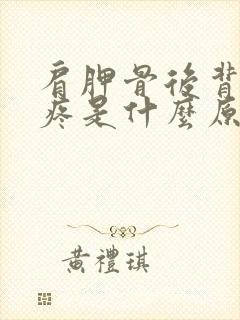 肩胛骨後背
疼是什麼原
黃禮琪